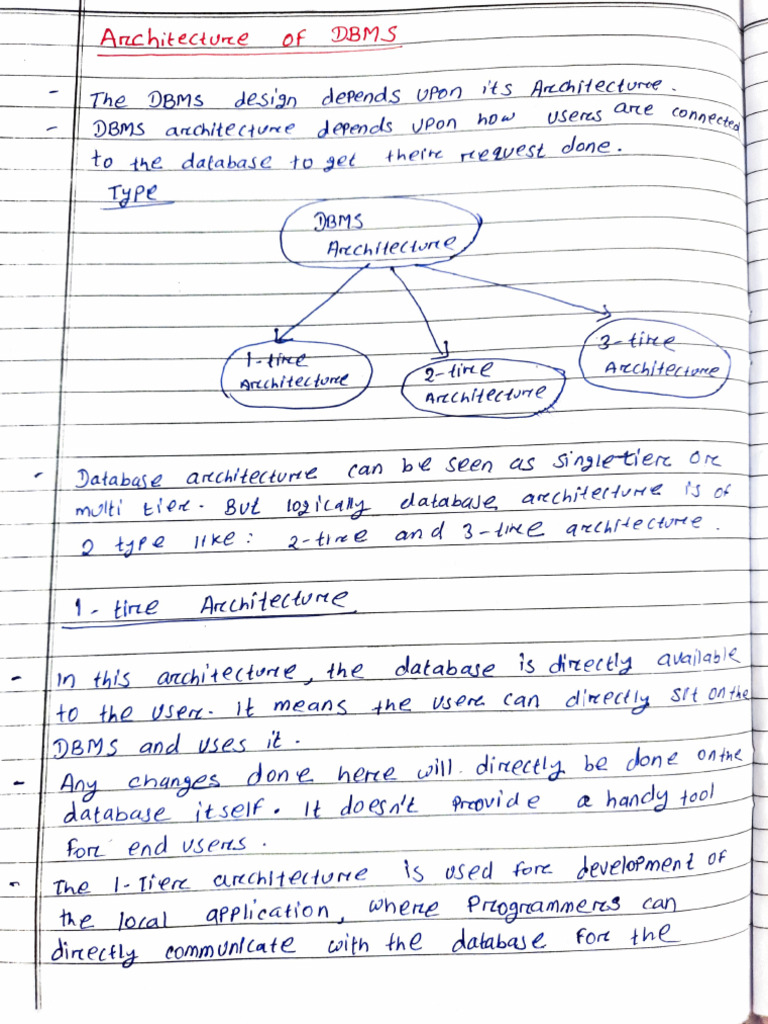 Architecture of DBMS
- The DBMS design depends upon its Architecture.
- DBMS architecture depends upon how users are connected
to the database to get their request done.
Type
DBMS
Architecture
1-tire
Architecture
2-tire
Architecture
3-tire
Architecture
- Database architecture can be seen as single tier or
multi tier. But logically database architecture is of
2 type like: 2-tire and 3-tire architecture.
1-tire Architecture
- In this architecture, the database is directly available
to the user. It means the user can directly sit on the
DBMS and uses it.
- Any changes done here will directly be done on the
database itself. It doesn't provide a handy tool
for end users.
- The 1-Tier architecture is used for development of
the local application, where programmers can
directly communicate with the database for the